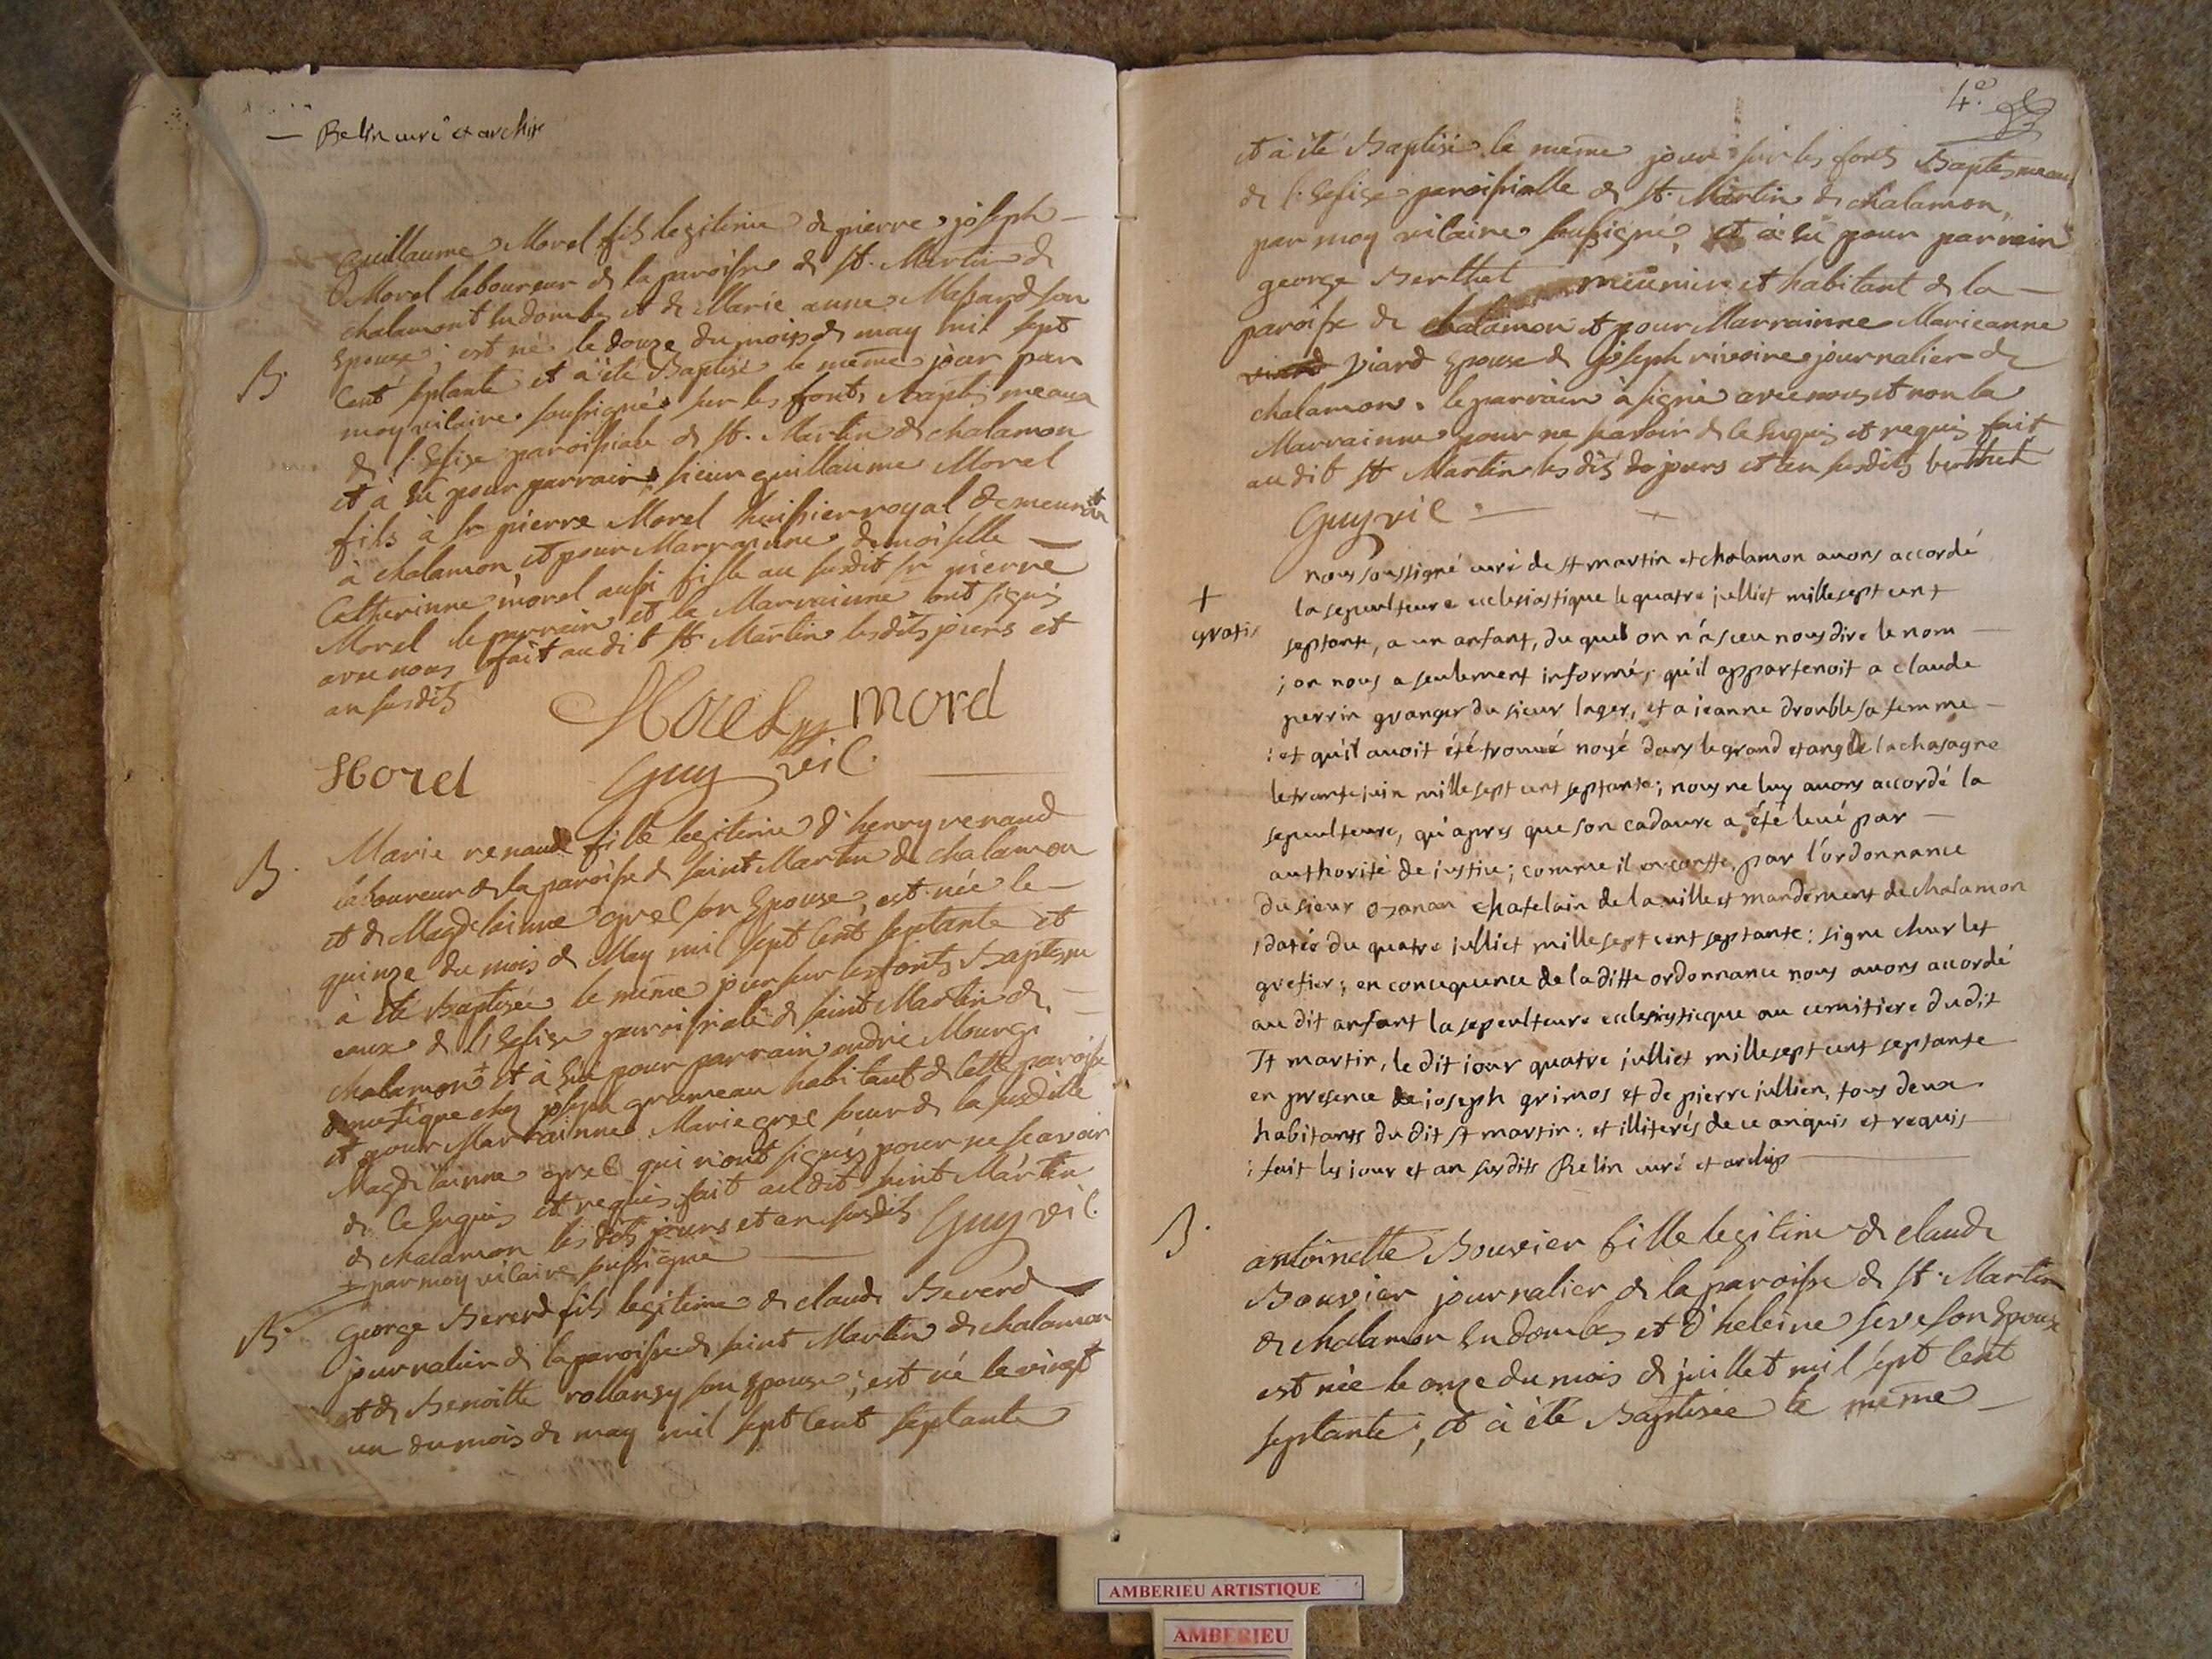 — Relin curé et archip
Guillaume Morel fils legitime de pierre joseph —
Morel laboureur de la paroisse de St. Martin de
chalamont en dombes et de Marie anne Massard son
Epouse; est né le douze du mois de may mil sept
B.
Cent septante et à été Baptisé le même jour par
moy vicaire soussigné sur les fonts Baptismeaux
de l'Eglise paroissiale de St. Martin de chalamon
et à eu pour parrain sieur guillaume Morel
fils à sr pierre Morel huissier royal demeurant
à chalamon et pour Marrainne demoiselle —
Catherinne morel aussi fille au susdit sr pierre
Morel le parrain et la Marrainne ont signés
avec nous fait au dit St Martin les dits jours et
an susdits
Morel morel
Morel Guy vic.
Marie renaud fille legitime d'henry renaud
B.
laboureur de la paroisse de saint Martin de chalamon
et de Magdelainne grel son Epouse, est née le —
quinze du mois de May mil sept Cent septante et
à été Baptisée le même jour sur les fonts Baptism
eaux de l'Eglise paroissiale de saint Martin de —
chalamon + et à eu pour parrain andré Mourgi
domestique chez joseph grumeau habitant de Cette paroisse
et pour Marrainne Marie grel soeur de la susditte
Magdelainne grel qui n'ont signés pour ne scavoir
de Ce Enquis et requis fait au dit saint Martin
de chalamon les dits jours et an susdits Guy vic.
+ par moy vicaire soussigné —
B.
George Bererd fils legitime de claude Bererd —
journalier de la paroisse de saint Martin de chalamon
et de Benoitte rollansy son Epouse; est né le vingt
un du mois de may mil sept Cent septante
4e.
et à été Baptisé le même jour sur les fonts Baptismeaux
de l'Eglise paroissialle de St. Martin de chalamon,
par moy vicaire soussigné, et à eu pour parrain
george Berthet meûnier et habitant de la —
paroisse de chalamon et pour Marrainne Marieanne
viard Viard Epouse de joseph rivoire journalier de
chalamon. le parrain à signé avec nous et non la
Marrainne pour ne scavoir de Ce Enquis et requis fait
au dit St Martin les dits jours et an susdits berthet
Guy vic. —
nous soussigné curé de st martin et chalamon avons accordé
+
la sepulteure ecclesiastique le quatre julliet mille sept cent
gratis
septante, a un anfant, du quel on n'a sceu nous dire le nom —
; on nous a seulement informé, qu'il appartenoit a claude
perrin granger du sieur lager, et a jeanne drouble sa femme —
: et qu'il avoit été trouvé noyé dans le grand etang de la chasagne
le trante juin mille sept cent septante; nous ne luy avons accordé la
sepulteure, qu'apres que son cadavre a été levé par —
authorité de justice; comme il en conste, par l'ordonnance
du sieur ozanan chatelain de la ville et mandement de chalamon
; datée du quatre julliet mille sept cent septante: signe churlet
grefier; en concequence de la ditte ordonnance nous avons accordé
au dit anfant la sepeulteure ecclesiasticque au cemitiere du dit
st martin, le dit jour quatre julliet mille sept cent septante
en presence de joseph grimos et de pierre jullien, tous deux
habitants du dit st martin: et illiterés de ce anquis et requis
: fait les jour et an susdits Relin curé et archip —
B.
antoinette Bouvier fille legitime de claude
Bouvier journalier de la paroisse de St. Martin
de chalamon En dombes et d'heleine seve son Epouse
est née le onze du mois de juillet mil sept Cent
septante; et à été Baptisée le même —
AMBERIEU ARTISTIQUE
AMBERIEU